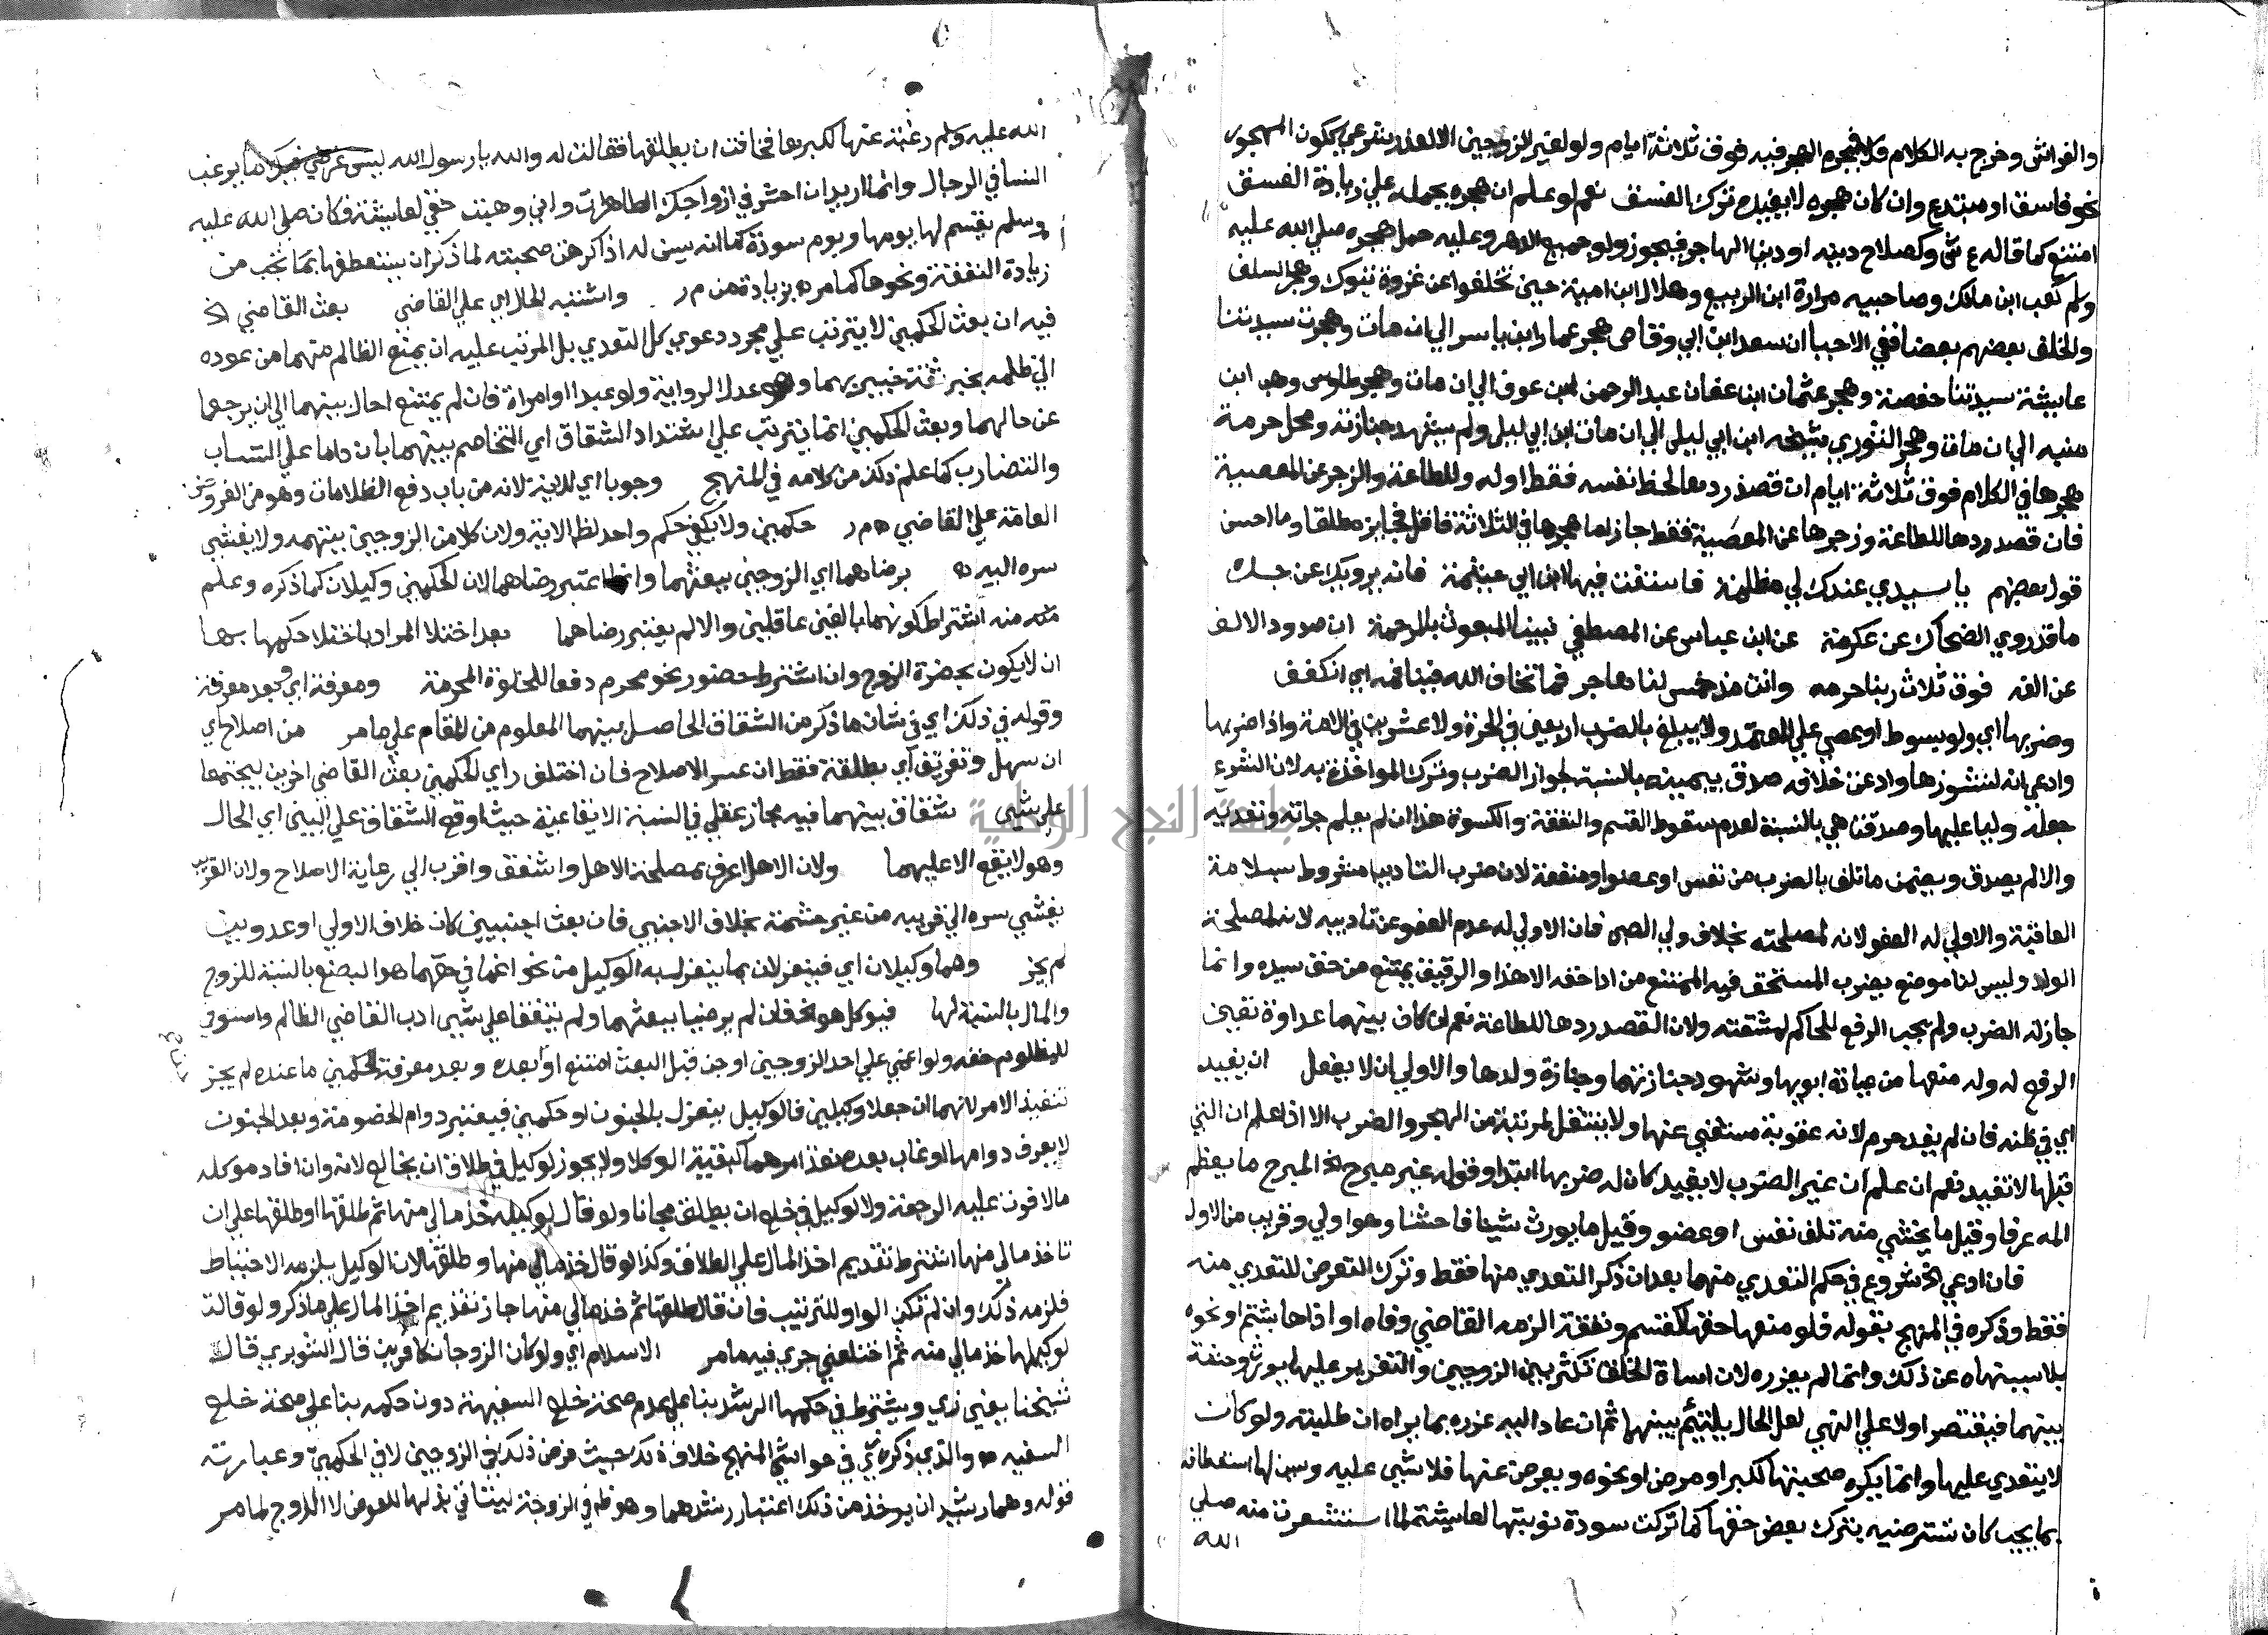 والفراش وخرج به الكلام فلا يجوز الهجر فيه فوق ثلاثة ايام ولو لغير الزوجين الا لعذر شرعي ككون المهجور
نحو فاسق او مبتدع وان كان هجره لا يفيد ترك الفسق نعم لو علم ان هجره يحمله علي زيادة الفسق
امتنع كما قاله ع ش وكصلاح دينه او دين الهاجر فيجوز ولو جميع الدهر وعليه حمل هجره صلي الله عليه
ولم كعب ابن مالك وصاحبيه مرارة ابن الربيع وهلال ابن امية حين تخلفوا عن غزوة تبوك وهجر السلف
والخلف بعضهم بعضا ففي الاحيا ان سعد ابن ابي وقاص هجر عمار ابن ياسر الي ان مات وهجرت سيدتنا
عايشة سيدتنا حفصة وهجر عثمان ابن عفان عبد الرحمن ابن عوف الي ان مات وهجر طاوس وهب ابن
منبه الي ان مات وهجر الثوري شيخه ابن ابي ليلي الي ان مات ابن ابي ليلي ولم يشهد جنازته ومحل حرمة
هجرها في الكلام فوق ثلاثة ايام ان قصد ردها لحظ نفسه فقط او له وللطاعة والزجر عن المعصية
فان قصد ردها للطاعة وزجرها عن المعصية فقط جاز اما هجرها في الثلاثة فاقل فجايز مطلقا وما احسن
قول بعضهم يا سيدي عندك لي مظلمة فاستفت فيها ابن ابي عيثمة فانه يرويه عن جده
ما قد روي الضحاك عن عكرمة عن ابن عباس عن المصطفي نبينا المبعوث بالرحمة ان صدود الالف
عن الفه فوق ثلاث ربنا حرمه وانت مذ خمس لنا هاجر فما تخاف الله فينا فمه اي انكفف
وضربها اي ولو بسوط او عصي علي المعتمد ولا يبلغ بالضرب اربعين في الحرة ولا عشرين في الامة واذا ضربها
وادعي انه لنشوزها وادعت خلافه صدق بيمينه بالنسبة لجواز الضرب وترك المواخذة به لان الشرع
جعله وليا عليها وصدقت هي بالنسبة لعدم سقوط القسم والنفقة والكسوة هذا ان لم يعلم جراته وتعديه
والا لم يصدق ويضمن ما تلف بالضرب من نفس او عضو او منفعة لان ضرب التاديب مشروط بسلامة
العاقبة والاولي له العفو لانه لمصلحته بخلاف ولي الصبي فان الاولي له عدم العفو عن تاديبه لانه لمصلحة
الولد وليس لنا موضع يضرب المستحق فيه الممتنع من اداء حقه الا هذا والرقيق يمتنع من حق سيده وانما
جاز له الضرب ولم يجب الرفع للحاكم لمشقته ولان القصد ردها للطاعة نعم ان كان بينهما عداوة تعين
الرفع له وله منعها من عيادة ابويها وشهود جنازتهما وجنازة ولدها والاولي ان لا يفعل ان يفيد
اي في ظنه فان لم يفد حرم لانه عقوبة مستغني عنها ولا ينتقل لمرتبة من الهجر والضرب الا اذا علم ان التي
قبلها لا تفيد نعم ان علم ان غير الضرب لا يفيد كان له ضربها ابتدا وقوله غير مبرح الخ المبرح ما يعظم
المه عرفا وقيل ما يخشي منه تلف نفس او عضو وقيل ما يورث شينا فاحشا وهو اولي وقريب من الاول
فان ادعي الخ شروع في حكم التعدي منهما بعد ان ذكر التعدي منها فقط وترك التعرض للتعدي منه
فقط وذكره في المنهج بقوله فلو منعها حقها كقسم ونفقة الزمه القاضي وفاه او اذاها بشتم او نحوه
بلا سبب نهاه عن ذلك وانما لم يعزره لان اساة الخلق تكثر بين الزوجين والتعزير عليها يورث وحشة
بينهما فيقتصر اولا علي النهي لعل الحال يلتئم بينهما ثم ان عاد اليه عزره بما يراه ان طلبته ولو كان
لا يتعدي عليها وانما يكره صحبتها لكبر او مرض او نحوه ويعرض عنها فلا شي عليه وسن لها استعطافه
بما يجب كان تسترضيه بترك بعض حقها كما تركت سودة نوبتها لعايشة لما استشعرت منه صلي
الله
الله عليه ولم رغبة عنها لكبرها فخافت ان يطلقها فقالت له والله يا رسول الله ليس غرضي فيك كما يرغب
النسا في الرجال وانما اريد ان احشر في ازواجك الطاهرات واني وهبت حقي لعايشة فكان صلي الله عليه
وسلم يقسم لها يومها ويوم سودة كما انه يسن له اذا كرهت صحبته لما ذكر ان يستعطفها بما تحب من
زيادة النفقة ونحوها كما مر ه بزيادة من م ر واشتبه الحال اي علي القاضي بعث القاضي الخ
فيه ان بعث الحكمين لا يترتب علي مجرد دعوي كل التعدي بل المرتب عليه ان يمنع الظالم منهما من عوده
الي ظلمه بخبر ثقة خبير بهما وهو عدل الرواية ولو عبدا او امراة فان لم يمتنع احال بينهما الي ان يرجعا
عن حالهما وبعث الحكمين انما يترتب علي اشتداد الشقاق اي التخاصم بينهما بان داما علي التساب
والتضارب كما علم ذلك من كلامه في المنهج وجوبا اي للاية لانه من باب دفع الظلامات وهو من الفروض
العامة علي القاضي ه م ر حكمين ولا يكفي حكم واحد لظاهر الاية ولان كلا من الزوجين يتهمه ولا يفشي
سره اليه ه برضاهما اي الزوجين ببعثهما وانما اعتبر رضاهما لان الحكمين وكيلان كما ذكره وعلم
منه اشتراط كونهما بالغين عاقلين والا لم يعتبر رضاهما بعد اختلا المراد باختلا حكمها بها
ان لا يكون بحضرة الزوج وان اشترط حضور نحو محرم دفعا للخلوة المحرمة ومعرفة اي وبعد معرفة
وقوله في ذلك اي في شان ما ذكر من الشقاق الحاصل بينهما المعلوم من المقام علي ما مر من اصلاح اي
ان سهل وتفريق اي بطلقة فقط ان عسر الاصلاح فان اختلف راي الحكمين بعث القاضي اخرين ليجتمعا
علي شي شقاق بينهما فيه مجاز عقلي في النسبة الايقاعية حيث اوقع الشقاق علي البين اي الحال
وهو لا يقع الا عليهما ولان الاهل اعرف بمصلحة الاهل واشفق واقرب الي رعاية الاصلاح ولان القريب
يفشي سره الي قريبه من غير حشمة بخلاف الاجنبي فان بعث اجنبيين كان خلاف الاولي او عدوين
لم يجز وهما وكيلان اي فينعزلان بما ينعزل به الوكيل من نحو اغما في حقهما هو البضع بالنسبة للزوج
والمال بالنسبة لها فيوكل هو الخ فان لم يرضيا ببعثهما ولم يتفقا علي شي ادب القاضي الظالم واستوفي
للمظلوم حقه ولو اغمي علي احد الزوجين او جن قبل البعث امتنع او بعده وبعد معرفة الحكمين ما عنده لم يجز
تنفيذ الامر لانهما ان جعلا وكيلين فالوكيل ينعزل بالجنون او حكمين فيعتبر دوام الخصومة وبعد الجنون
لا يعرف دوامها او غاب بعده نفذ امرهما كبقية الوكلا ولا يجوز لوكيل في طلاق ان يخالع لانه وان افاد موكله
مالا فوت عليه الرجعة ولا لوكيل في خلع ان يطلق مجانا ولو قال لوكيله خذ مالي منها ثم طلقها او طلقها علي ان
تاخذ مالي منها اشترط تقديم اخذ المال علي الطلاق وكذا لو قال خذ مالي منها وطلقها لان الوكيل يلزمه الاحتياط
فلزمه ذلك وان لم تكن الواو للترتيب فان قال طلقها ثم خذ مالي منها جاز تقديم اخذ المال علي ما ذكر ولو قالت
لوكيلها خذ مالي منه ثم اختلعني جري فيه ما مر الاسلام اي ولو كان الزوجان كافرين قال الشوبري قال
شيخنا يعني زي ويشترط في حكمها الرشد بنا علي عدم صحة خلع السفيهة دون حكمه بنا علي صحة خلع
السفيه ه والذي ذكره زي في حواشي المنهج خلاف ذلك حيث فرض ذلك في الزوجين لا في الحكمين وعبارته
قوله وهما رشيدان يوخذ من ذلك اعتبار رشدهما وهو ظ في الزوجة ليتاتي بذلها للعوض لا الزوج لما مر